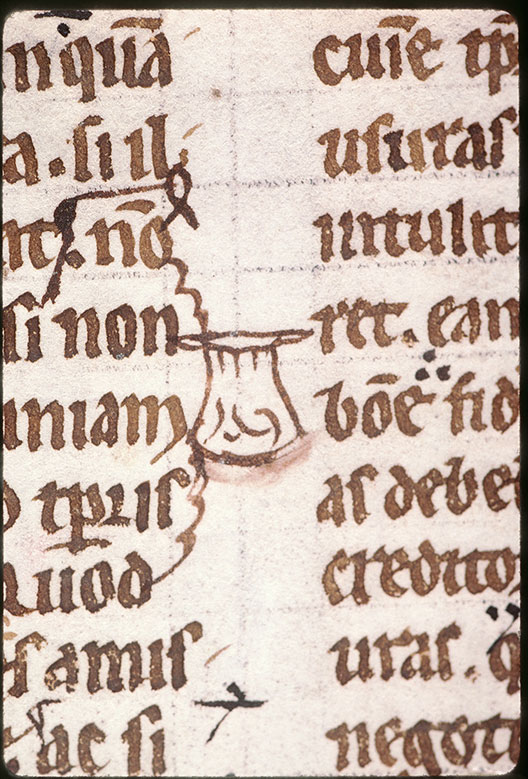 nquã
a. si il
nt. nō
si non
uniam
tꝑis
quod
amis
ac si
cuīe tp̄
usuras
intulit
ret. eam
bōe fid
as debe
credito
uras. q
negoti